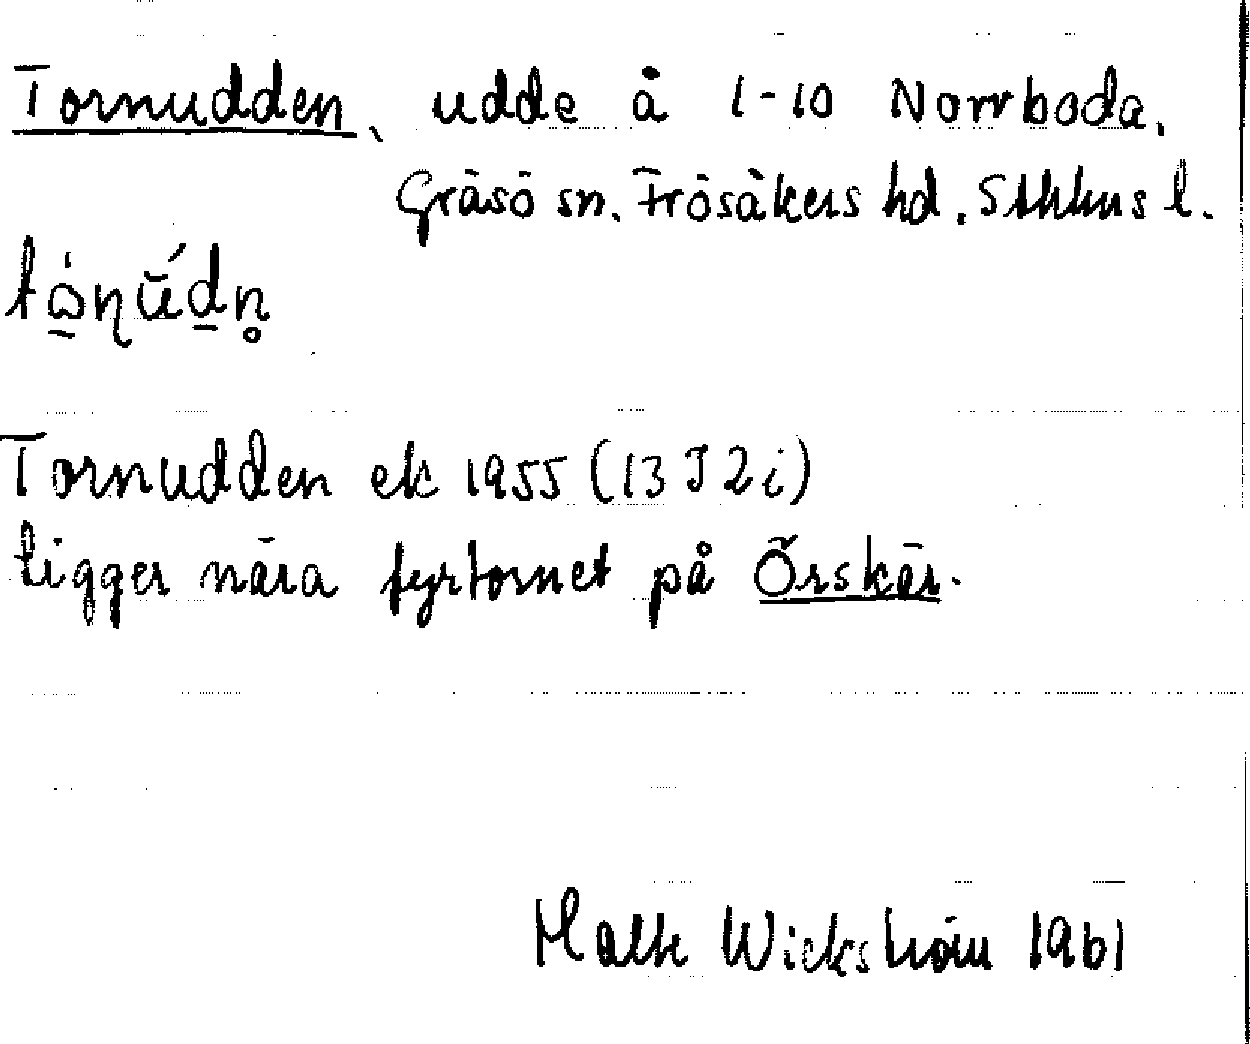 Tornudden, udde å 1-10 Norrboda,
Gräsö sn. Frösåkers hd. Sthlms l.
Tornudden ek 1955 (13 I 2 i)
ligger nära fyrtornet på Örskär.
Malte Wickström 1961